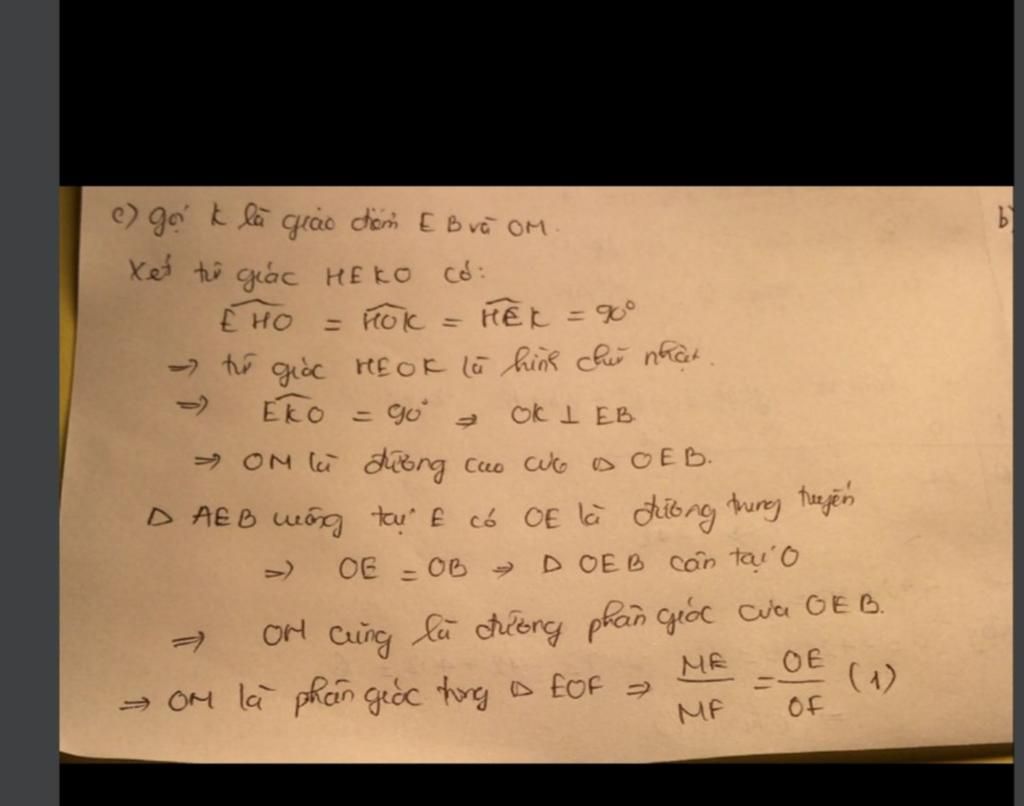 c) gọi K là giao điểm EB và OM.
b)
Xét tứ giác HEKO có:
EHO = HOK = HEK = 90°
=> tứ giác HEOK là hình chữ nhật.
=> EKO = 90° => OK ⊥ EB
=> OM là đường cao của △ OEB.
△ AEB vuông tại E có OE là đường trung tuyến
=> OE = OB => △ OEB cân tại O
=> OM cũng là đường phân giác của OEB.
=> OM là phân giác trong △ EOF => ME/MF = OE/OF (1)